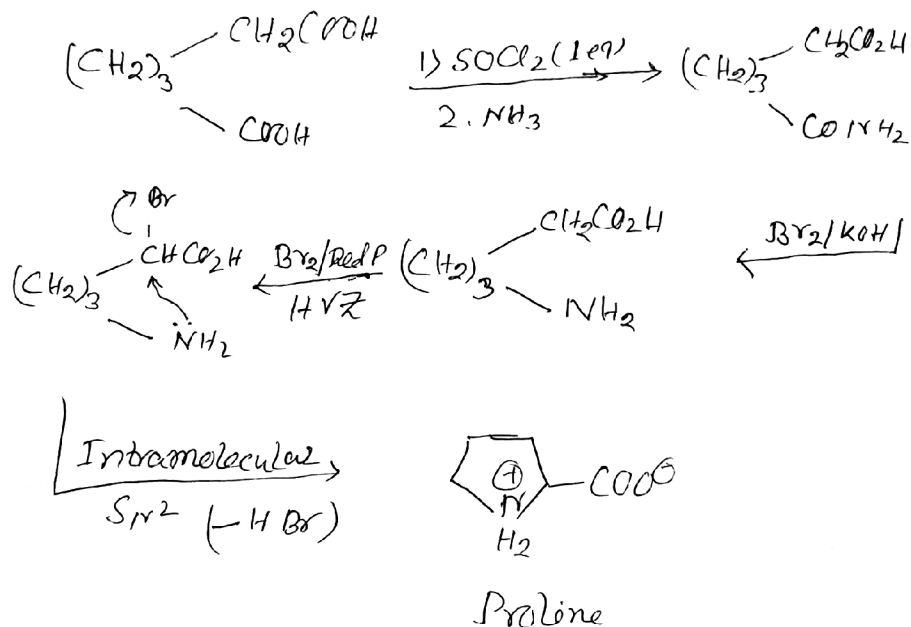 (CH2)3 CH2COOH COOH
1) SOCl2 (1eq)
2. NH3
(CH2)3 CH2CO2H CONH2
Br2/KOH
(CH2)3 CH2CO2H NH2
Br2/Red P
HVZ
Br
(CH2)3 CHCO2H N̈H2
Intramolecular
SN2 (-HBr)
⊕
N
H2
COO⊖
Proline